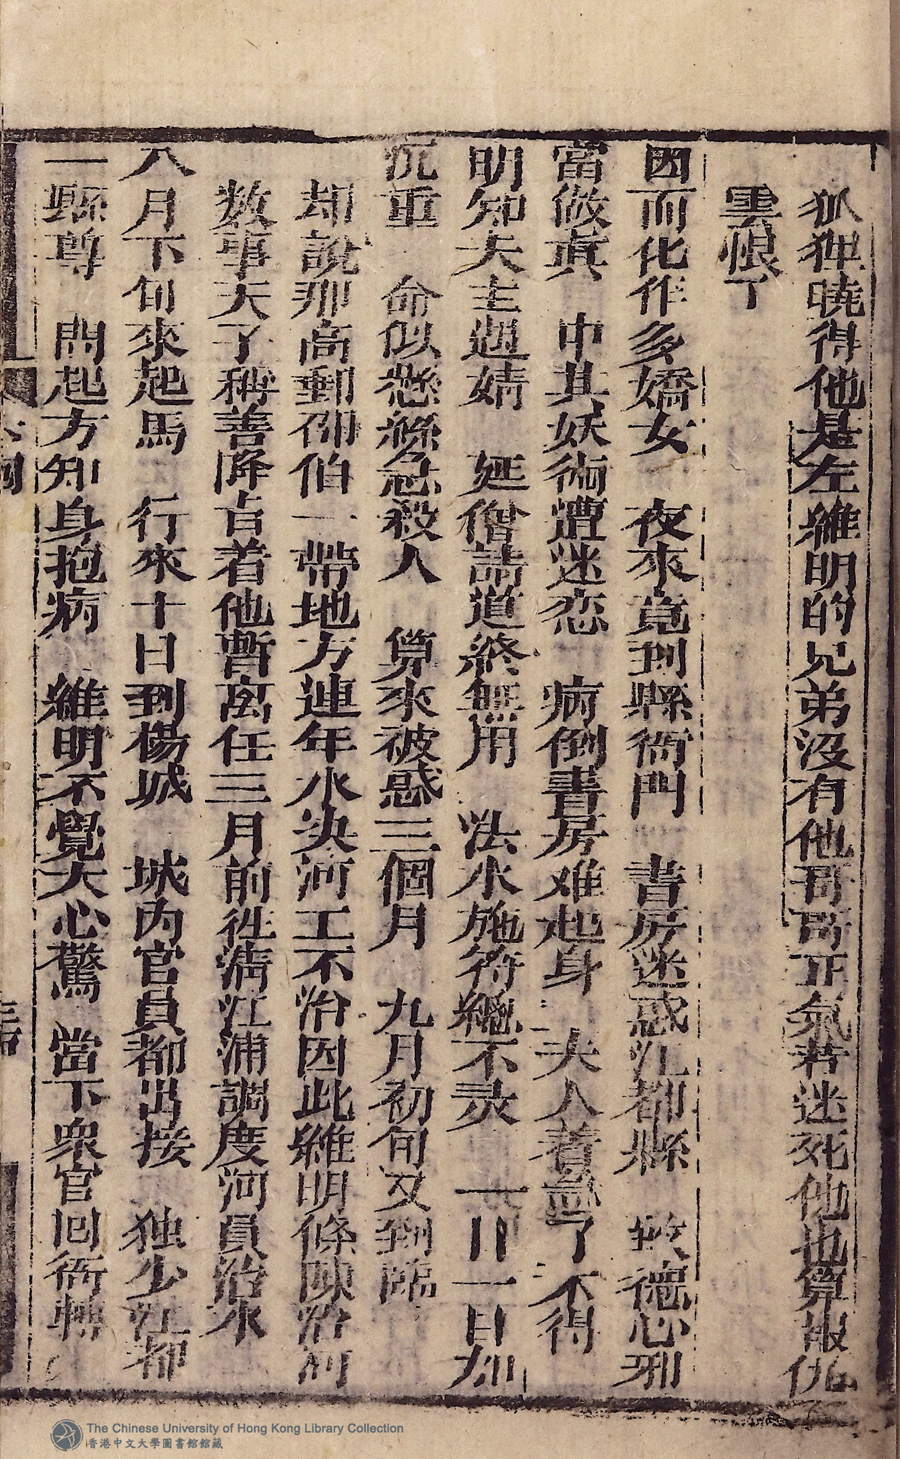 狐狸曉得他是左維明的兄弟沒有他哥哥正氣若迷死他也算報仇
雲恨了
因而化作多嬌女　夜來竟到縣衙門　書房迷惑江都縣　致德心邪
當做真　中其妖術遭迷恋　病倒書房难起身　夫人着急了不得
明知夫主遇婧　延僧請道終無用　法水施符總不灵　一日一日加
沉重　命似懸絲急殺人　算來被惑三個月　九月初旬又到臨
却說那高郵邵伯一帶地方連年水决河工不治因此維明條陳治河
数事天子稱善降旨着他暫离任三月前徃淸江浦調度河員治水
八月下旬來起馬　行來十日到楊城　城內官員都岀接　独少江都
一縣尊　問起方知身抱病　維明不覺大心驚　當下衆官囘衙轉
The Chinese University of Hong Kong Library Collection
香港中文大學圖書館館藏